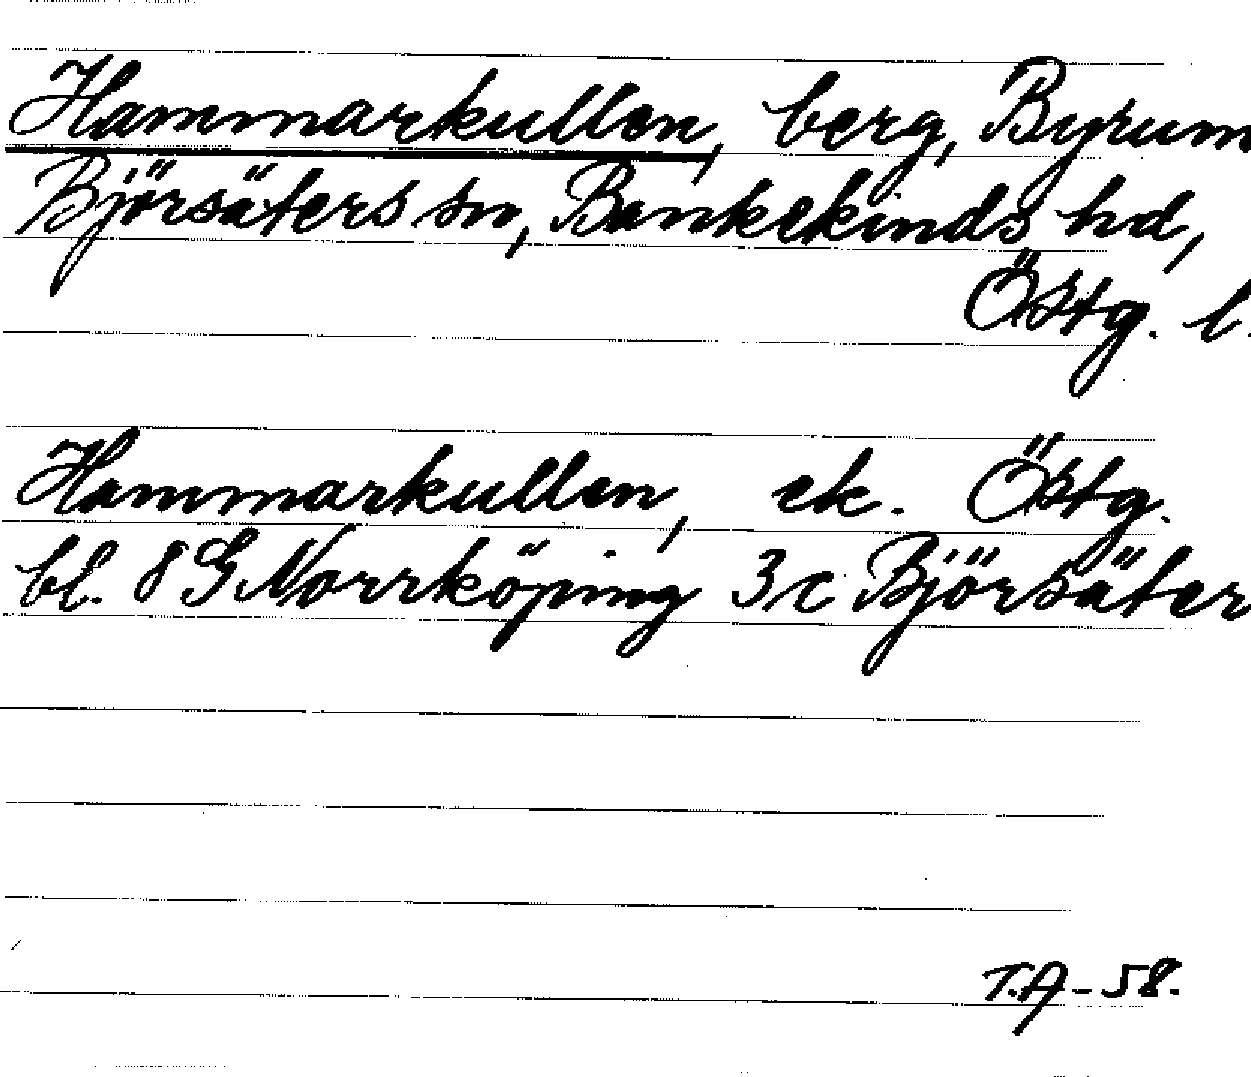 Hammarkullen, berg, Byrum
Björsäters sn, Bankekinds hd,
Östg. l.
Hammarkullen, ek. Östg.
bl. 8 G Norrköping 3c Björsäter
T.A-58.